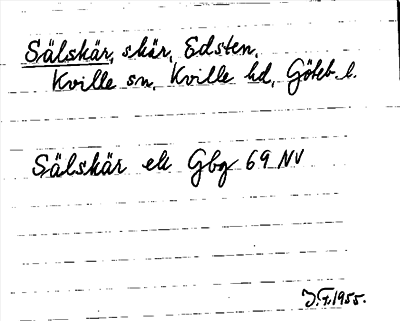 Sälskär, skär, Edsten,
Kville sn, Kville hd, Göteb. l.
Sälskär ek Gbg 69 NV
J.F. 1955.